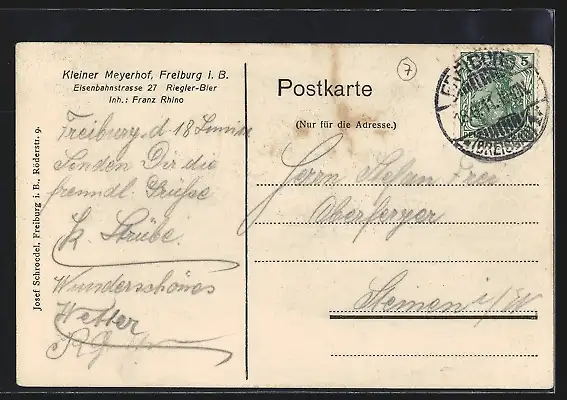 Kleiner Meyerhof, Freiburg i. B.
Eisenbahnstrasse 27 Riegler-Bier
Inh.: Franz Rhino
Postkarte
(Nur für die Adresse.)
7
5
FREIBURG
(BREISGAU)
Josef Schroedel, Freiburg i. B., Röderstr. 9.
Freiburg d 18
Senden Dir die
freundl. Grüße
K. Strübe.
Wunderschönes
Wetter
Herrn Stefan Frei
Steinen i/W